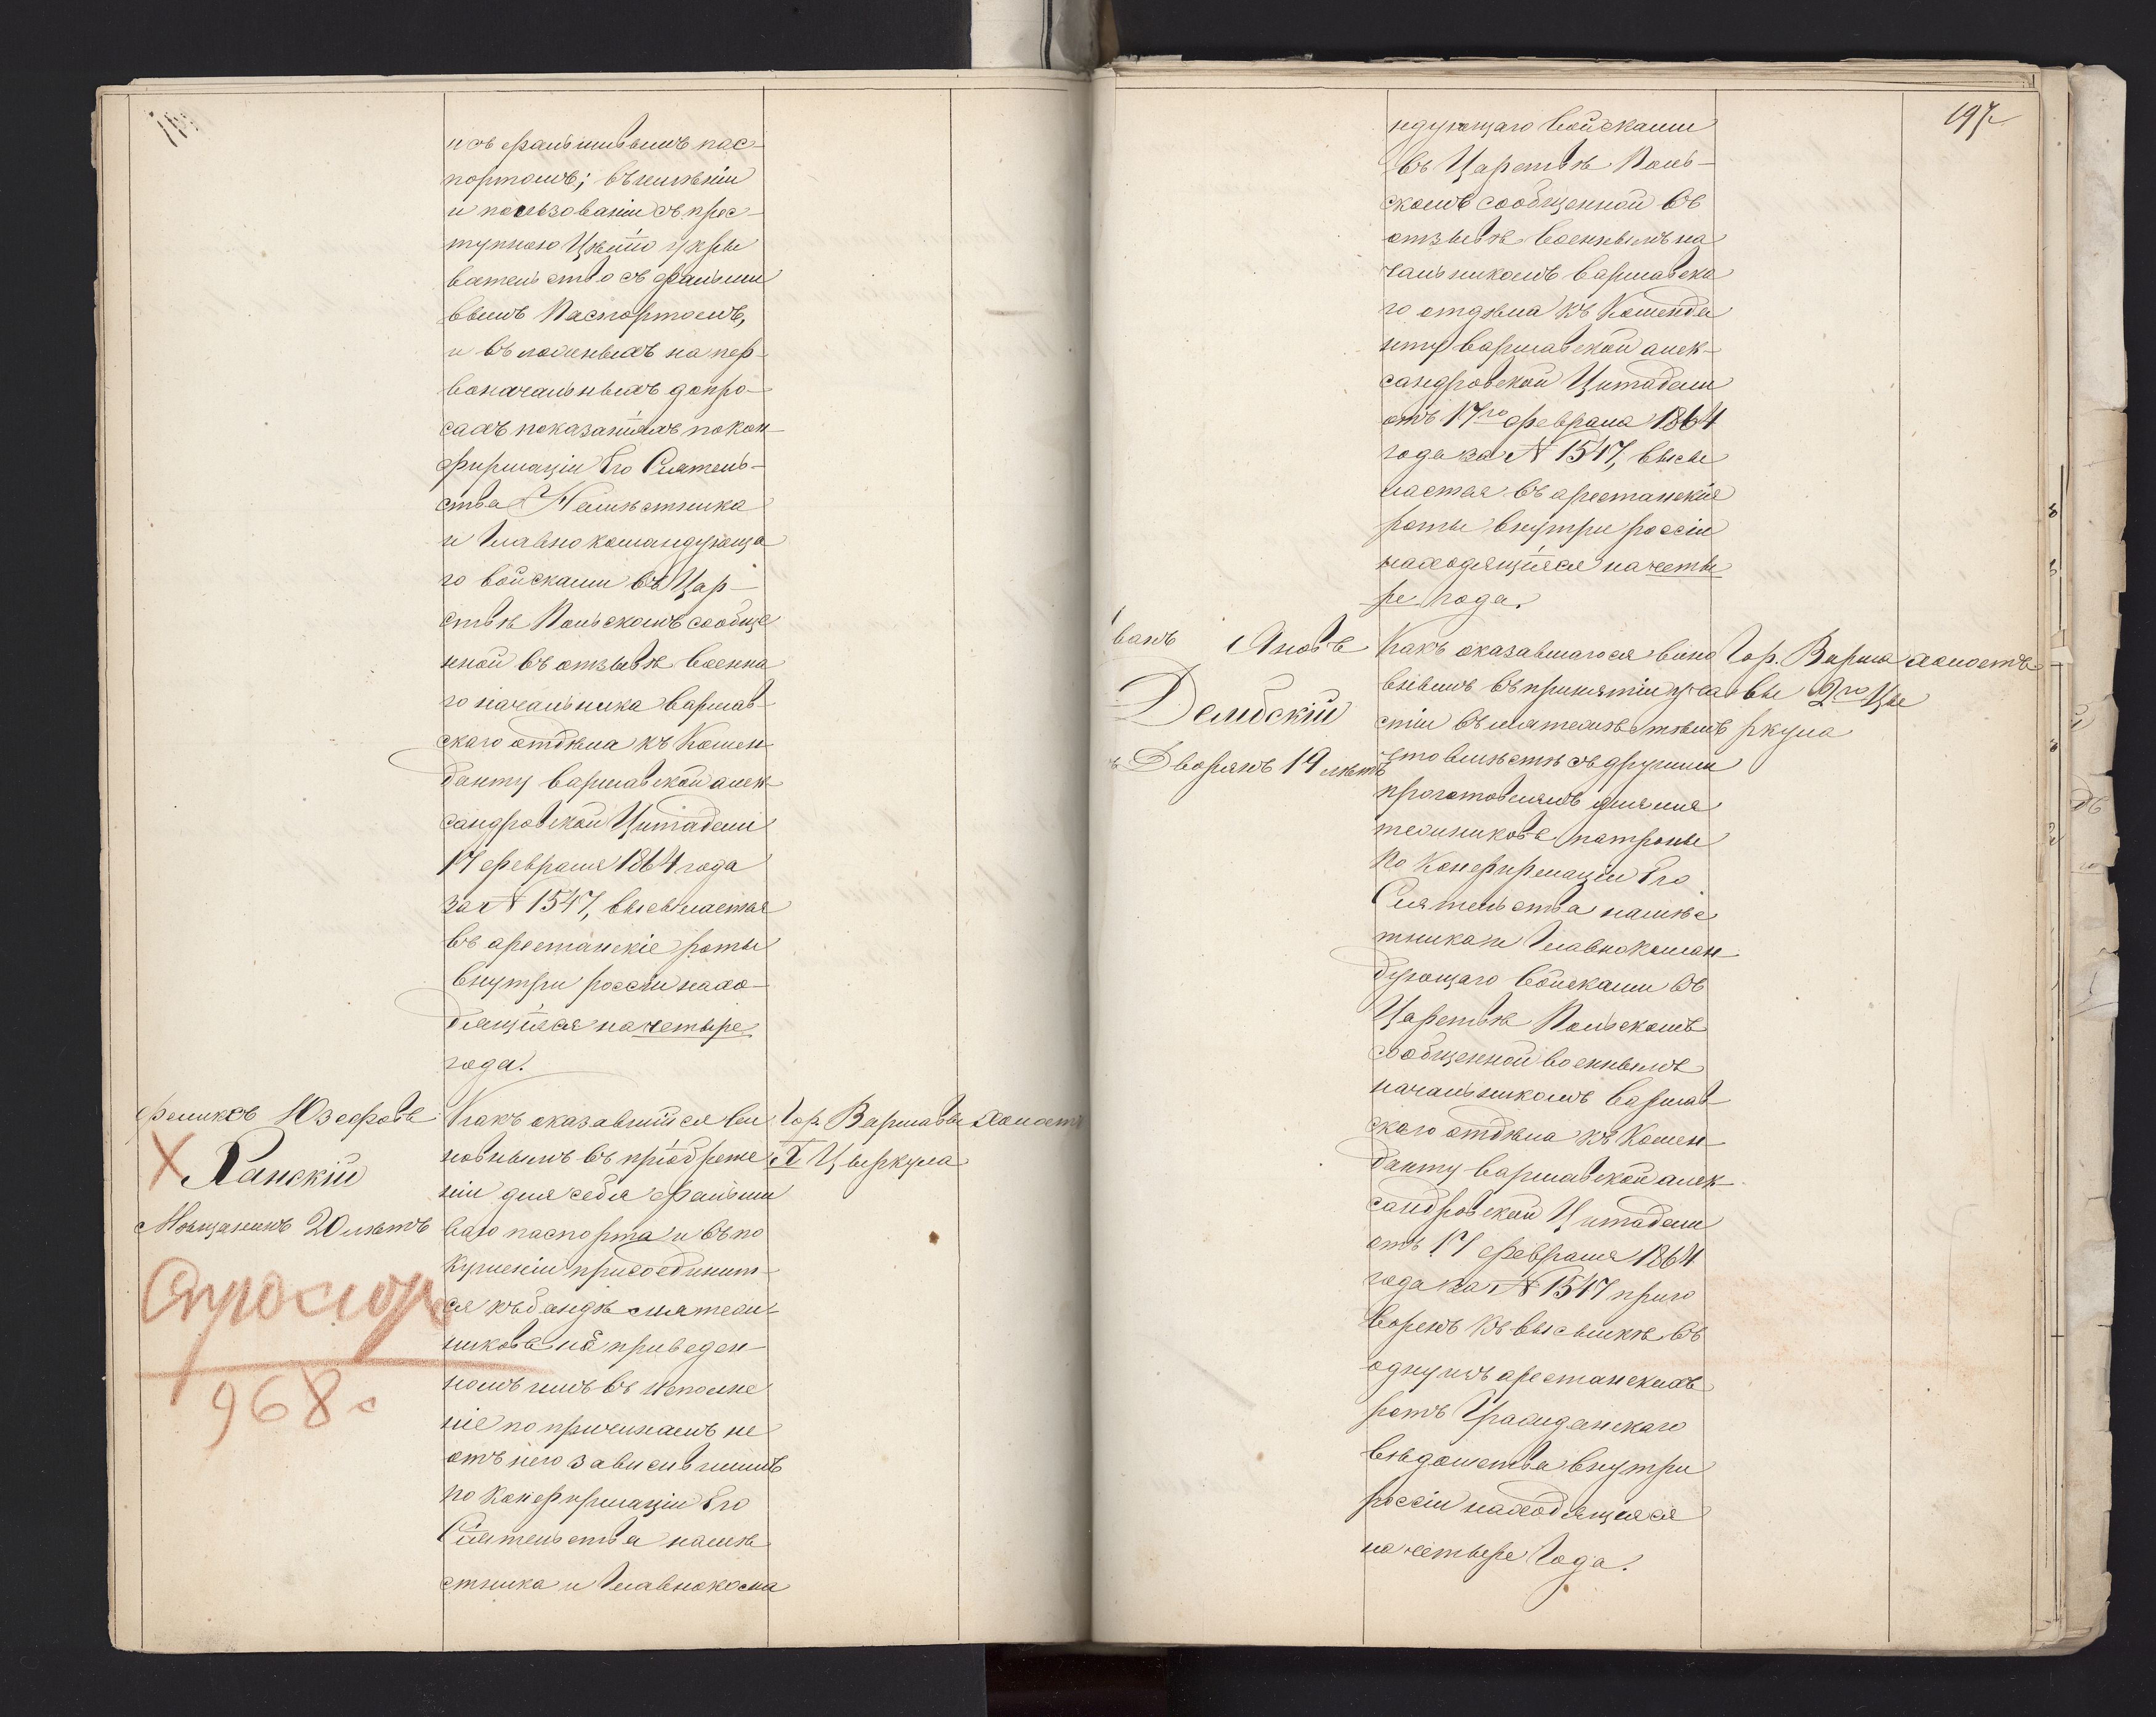 и съ фальшивымъ пас-
портомъ; въ имѣніи
и пользованіи съ прес-
тупною Цѣлію укры
вательство съ фальши
вымъ Паспортомъ,
и въ ложныхъ на пер-
воначальныхъ допро-
сахъ показаніяхъ по кон-
фирмаціи Его Сіятель-
ства Намѣстника
и Главнокомандующа
го войсками въ Цар-
ствѣ Польскомъ сообще
нной въ отзывѣ Военна
го начальника Варшав-
скаго отдѣла къ Комен-
данту Варшавской алек-
сандровской Цитадели
17 февраля 1864 года
за № 1547, высылается
въ арестанскіе роты
внутри россіи нахо-
дящіяся на четыре
года.
Феликсъ Юзефовъ
Ханскій
Мѣщанинъ 20 лѣтъ
968
Какъ оказавшійся ви
новнымъ въ пріобрете
ніи для себя фальши
ваго паспорта и въ по
кушеніи присоединит-
ся къ бандѣ мятеж-
никовъ не приведен-
номъ имъ въ исполне
ніе по причинамъ не
отъ него зависившимъ
по Конфирмаціи Его
Сіятельства намѣ
стника и Главнокома
Гор. Варшавы холостъ
X Цыркула
197
ндующаго Войсками
въ Царствѣ Поль-
скомъ сообщенной въ
отзывѣ Военнымъ на
чальникомъ Варшавска
го отдѣла къ Коменда
нту Варшавской алек-
сандровской Цитадели
отъ 17го февраля 1864
года за № 1547, высы
лается въ арестанскія
роты внутри россіи
находящійся на четы
ре года.
ванъ Яновъ
Дембскій
Дворянъ 19 лѣтъ
Какъ оказавшагося вино
внымъ въ принятіи уча
стіи въ мятежѣ
что вмѣстѣ съ другими
проготовлялъ для мя
тежниковъ патроны
По Конфирмаціи Его
Сіятельства намѣс
тника и Главнокоман
дующаго Войсками въ
Царствѣ Польскомъ
сообщенной военнымъ
начальникомъ Варшав
скаго отдѣла къ Комен
данту Варшавской алек
сандровской Цитадели
отъ 17 февраля 1864
года за № 1547 приго
воренъ къ высылкѣ въ
одну изъ арестанскихъ
ротъ Гражданскаго
вѣдомства внутри
россіи находящіяся
на четыре Года.
Гор. Варша холостъ
вы 2го Цы
ркула